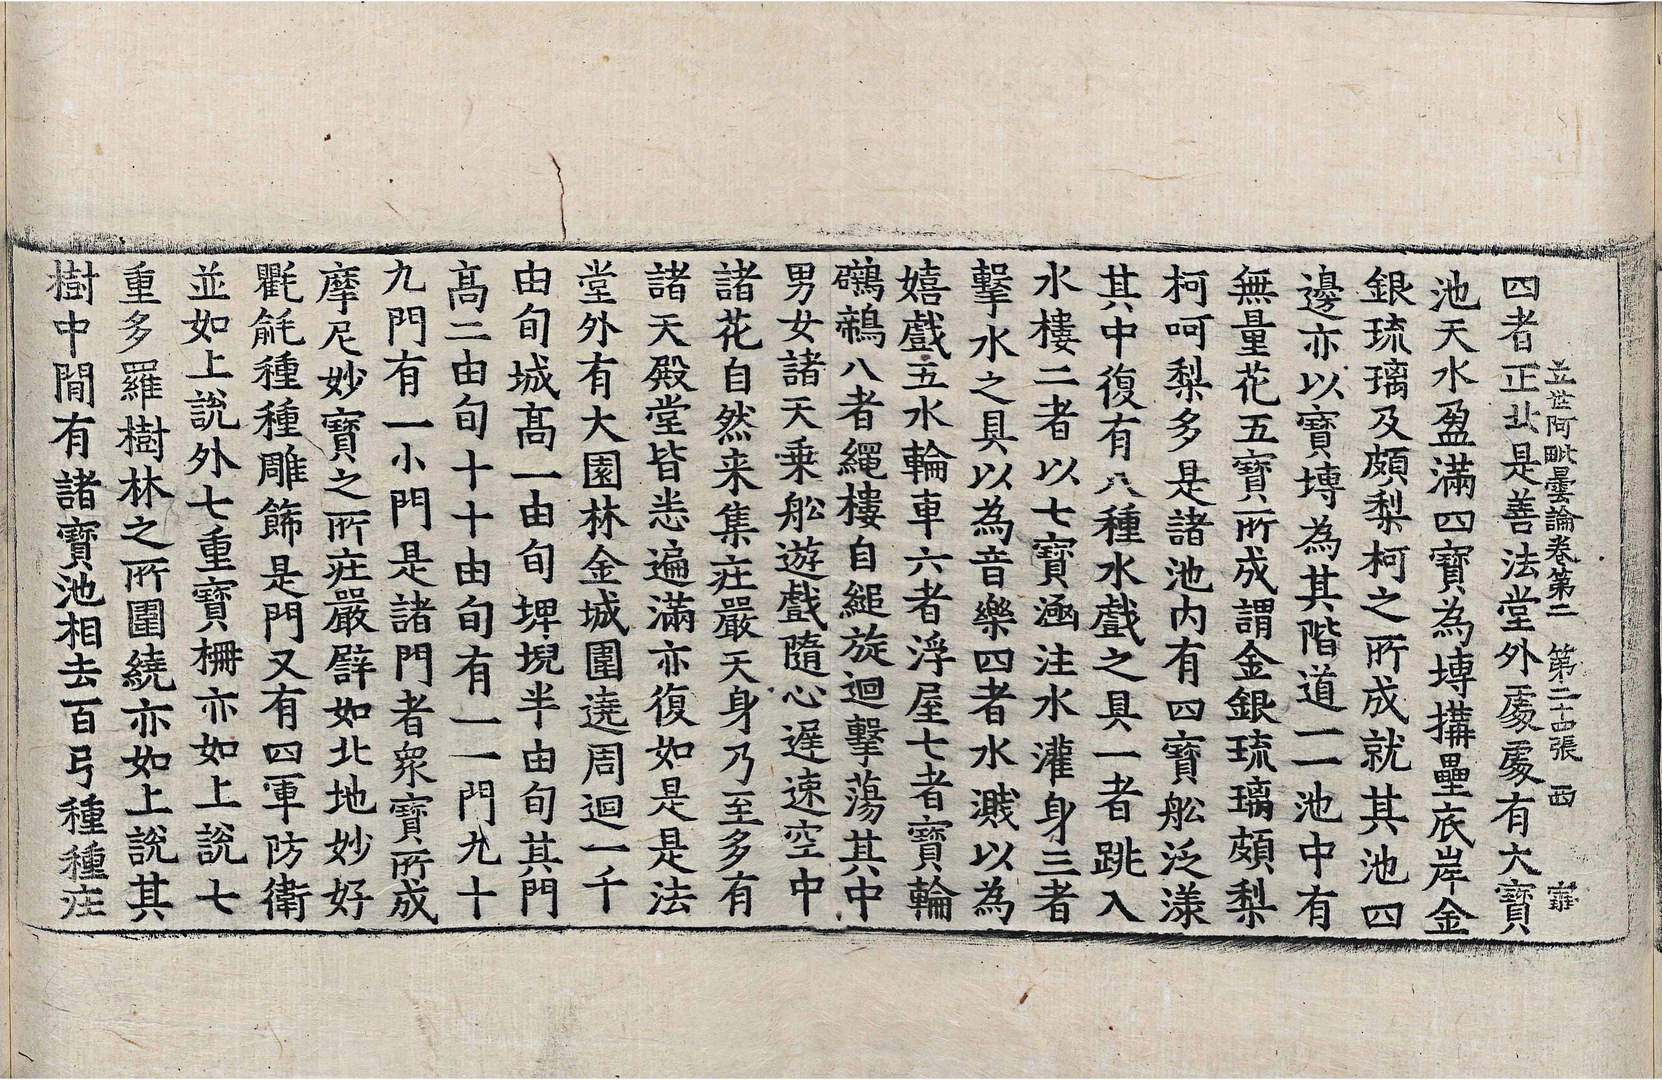 立世阿毗曇論卷第二　第二十四張　西
四者正北是善法堂外處處有大寶
池天水盈滿四寶為塼搆壘底岸金
銀琉璃及頗梨柯之所成就其池四
邊亦以寶塼為其階道一一池中有
無量花五寶所成謂金銀琉璃頗梨
柯呵梨多是諸池內有四寶舩泛漾
其中復有八種水戲之具一者跳入
水樓二者以七寶涵注水灌身三者
擊水之具以為音樂四者水濺以為
嬉戲五水輪車六者浮屋七者寶輪
鞦八者繩樓自縋旋迴擊蕩其中
男女諸天乗舩遊戲隨心遲速空中
諸花自然来集莊嚴天身乃至多有
諸天殿堂皆悉遍滿亦復如是是法
堂外有大園林金城圍遶周迴一千
由旬城髙一由旬埤堄半由旬其門
髙二由旬十十由旬有一一門九十
九門有一小門是諸門者衆寶所成
摩尼妙寶之所莊嚴譬如北地妙好
氍毹種種雕飾是門又有四軍防衛
並如上說外七重寶柵亦如上說七
重多羅樹林之所圍繞亦如上說其
樹中間有諸寶池相去百弓種種莊